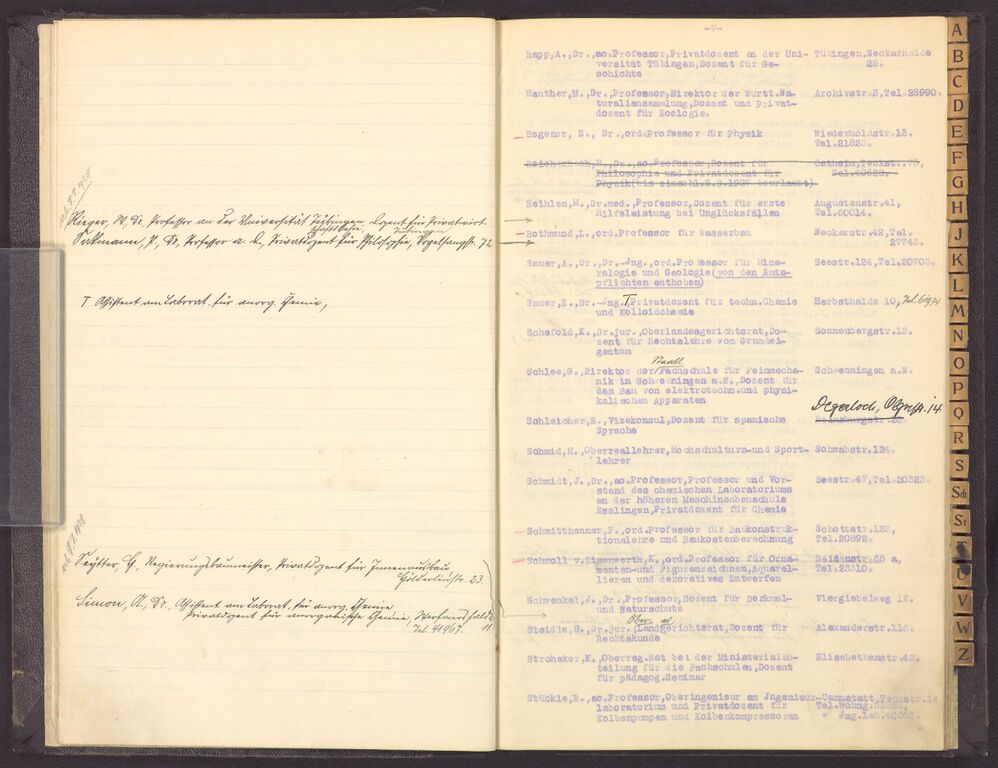 Rieger, W, Dr, Professor an der Universität Tübingen, Dozent für Privatwirt-
schaftslehre, Tübingen
P, Dr, Professor a. d., Privatdozent für Philosophie, Vogelsangstr. 72
T Assistent am Laborat. für anorg. Chemie,
Seytter, Regierungsbaumeister, Privatdozent für Innenausbau
Hölderlinstr. 23
Simon, A, Dr, Assistent am Laborat. für anorg. Chemie
Privatdozent für anorganische Chemie, Werfmershalde
Tel 41967. 11
-9-
Rapp,A.,Dr.,ao.Professor,Privatdozent an der Uni- Tübingen,Neckarhalde
versität Tübingen,Dozent für Ge- 25.
schichte
Rauther,M.,Dr.,Professor,Direktor der Württ.Na- Archivstr.3,Tel.28990.
turaliensammlung,Dozent und Privat-
dozent für Zoologie.
Regener, E., Dr.,ord.Professor für Physik Wiederholdstr.13.
Tel.21823.
Reichenbach,H.,Dr.,ao.Professor,Dozent für Ostheim,Teckstr.75,
Philosophie und Privatdozent für Tel.40623.
Physik(bis einschl.8.9.1927 beurlaubt)
Reihlen,M.,Dr.med., Professor,Dozent für erste Augustenstr.41,
Hilfeleistung bei Unglücksfällen Tel.60014.
Rothmund,L.,ord.Professor für Wasserbau Neckarstr.42,Tel.
27743.
Sauer,A.,Dr.,Dr.-Jng.,ord.Professor für Mine- Seestr.124,Tel.20703.
ralogie und Geologie(von den Amts-
pflichten enthoben)
Sauer,E.,Dr.-Jng.T,Privatdozent für techn.Chemie Herbsthalde 10,
und Kolloidchemie
Schefold,K.,Dr.jur.,Oberlandesgerichtsrat,Do- Sonnenbergstr.12.
zent für Rechtslehre vom Grundei-
gentum
Staatl.
Schlee,G.,Direktor der Fachschule für Feinmecha- Schwenningen a.N.
nik in Schwenningen a.N.,Dozent für
den Bau von elektrotechn.und physi-
kalischen Apparaten
Degerloch, Olgastr. 14
Schleicher,B.,Vizekonsul,Dozent für spanische
Sprache
Schmid,H.,Oberreallehrer,Hochschulturn-und Sport- Schwabstr.124.
lehrer
Schmidt,J.,Dr.,ao.Professor,Professor und Vor- Seestr.47,Tel.20323.
stand des chemischen Laboratoriums
an der höheren Maschinenbauschule
Esslingen,Privatdozent für Chemie
Schmitthenner,P.,ord.Professor für Baukonstruk- Schottstr.123,
tionslehre und Baukostenberechnung Tel.20892.
Schmoll v.Eisenwerth,K.,ord.Professor für Orna- Seidenstr.65 a,
menten-und Figurenzeichnen,Aquarel- Tel.23810.
lieren und dekoratives Entwerfen
Schwenkel,J.,Dr.,Professor,Dozent für Denkmal- Viergiebelweg 12.
und Naturschutz
Ober
Steidle,B.,Dr.jur.,Landgerichtsrat,Dozent für Alexanderstr.116.
Rechtskunde
Stroheker,K.,Oberreg.Rat bei der Ministerialab- Elisabethenstr.42.
teilung für die Fachschulen,Dozent
für pädagog.Seminar
Stückle,R.,ao.Professor,Oberingenieur am Jngenieur- Cannstatt,Teckstr.14
laboratorium und Privatdozent für Tel.Wohng.
Kolbenpumpen und Kolbenkompressoren " Jng.Lab.
A
B
C
D
E
F
G
H
J
K
L
M
N
O
P
Q
R
S
Sch
St
U
V
W
Z